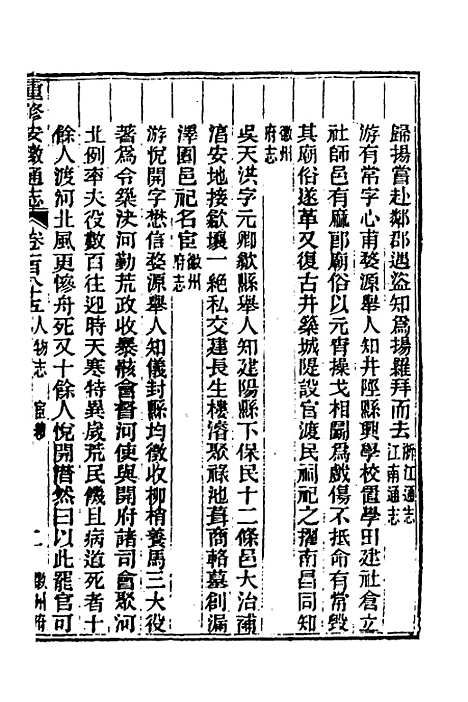 歸揚嘗赴鄰郡遇盜知爲揚羅拜而去浙江通志江南通志
游有常字心甫婺源舉人知井陘縣興學校置學田建社倉立
社師邑有麻郎廟俗以元宵操戈相鬬爲戲傷不抵命有常毁
其廟俗遂革又復古井築城隄設官渡民祠祀之擢南昌同知
徽州府志
吳天洪字元卿歙縣舉人知建陽縣下保民十二條邑大治補
淯安地接歙壤一絕私交建長生樓濬聚祿池葺商輅墓創漏
澤園邑祀名宦徽州府志
游悅開字懋信婺源舉人知儀封縣均徵收柳梢養馬三大役
著爲令築決河勤荒政收暴骸會督河使與開府諸司會聚河
北例率夫役數百往迎時天寒特異歲荒民饑且病道死者十
餘人渡河北風更慘舟死又十餘人悅開潸然曰以此罷官可
重修安徽通志 卷一百八十五 人物志 宦績 二 徽州府